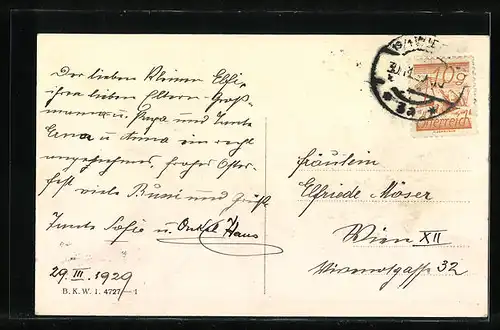 Der lieben kleinen Elfi,
ihren lieben Eltern, Groß-
mama u. Papa und Tante
Erna u. Anna ein recht
angenehmes, frohes Oster-
fest viele Bussi und Grüße
Tante Sofie u. Onkel Hans
29. III. 1929
B. K. W. I. 4727—1
10 g
Österreich
Fräulein
Elfriede Möser
Wien XII